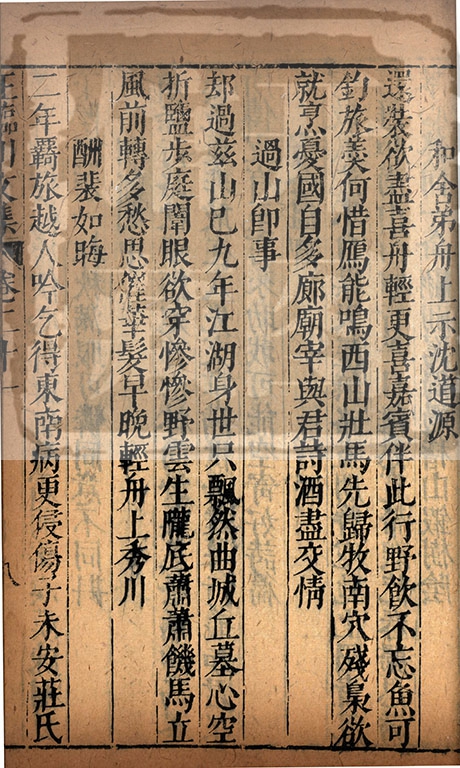 和舍弟舟上示沈道源
還裝欲盡喜舟輕更喜嘉賓伴此行野飲不忘魚可
釣旅羙何惜鴈能鳴西山壯馬先歸牧南穴殘梟欲
就烹憂國自多廊廟宰與君詩酒盡交情
過山卽事
却過兹山已九年江湖身世只飄然曲城丘墓心空
折鹽步庭闈眼欲穿慘慘野雲生隴底蕭蕭饑馬立
風前轉多愁思催華髮早晚輕舟上秀川
酬裴如晦
二年羇旅越人吟乞得東南病更侵傷子未安莊氏
王臨川文集 卷二十一